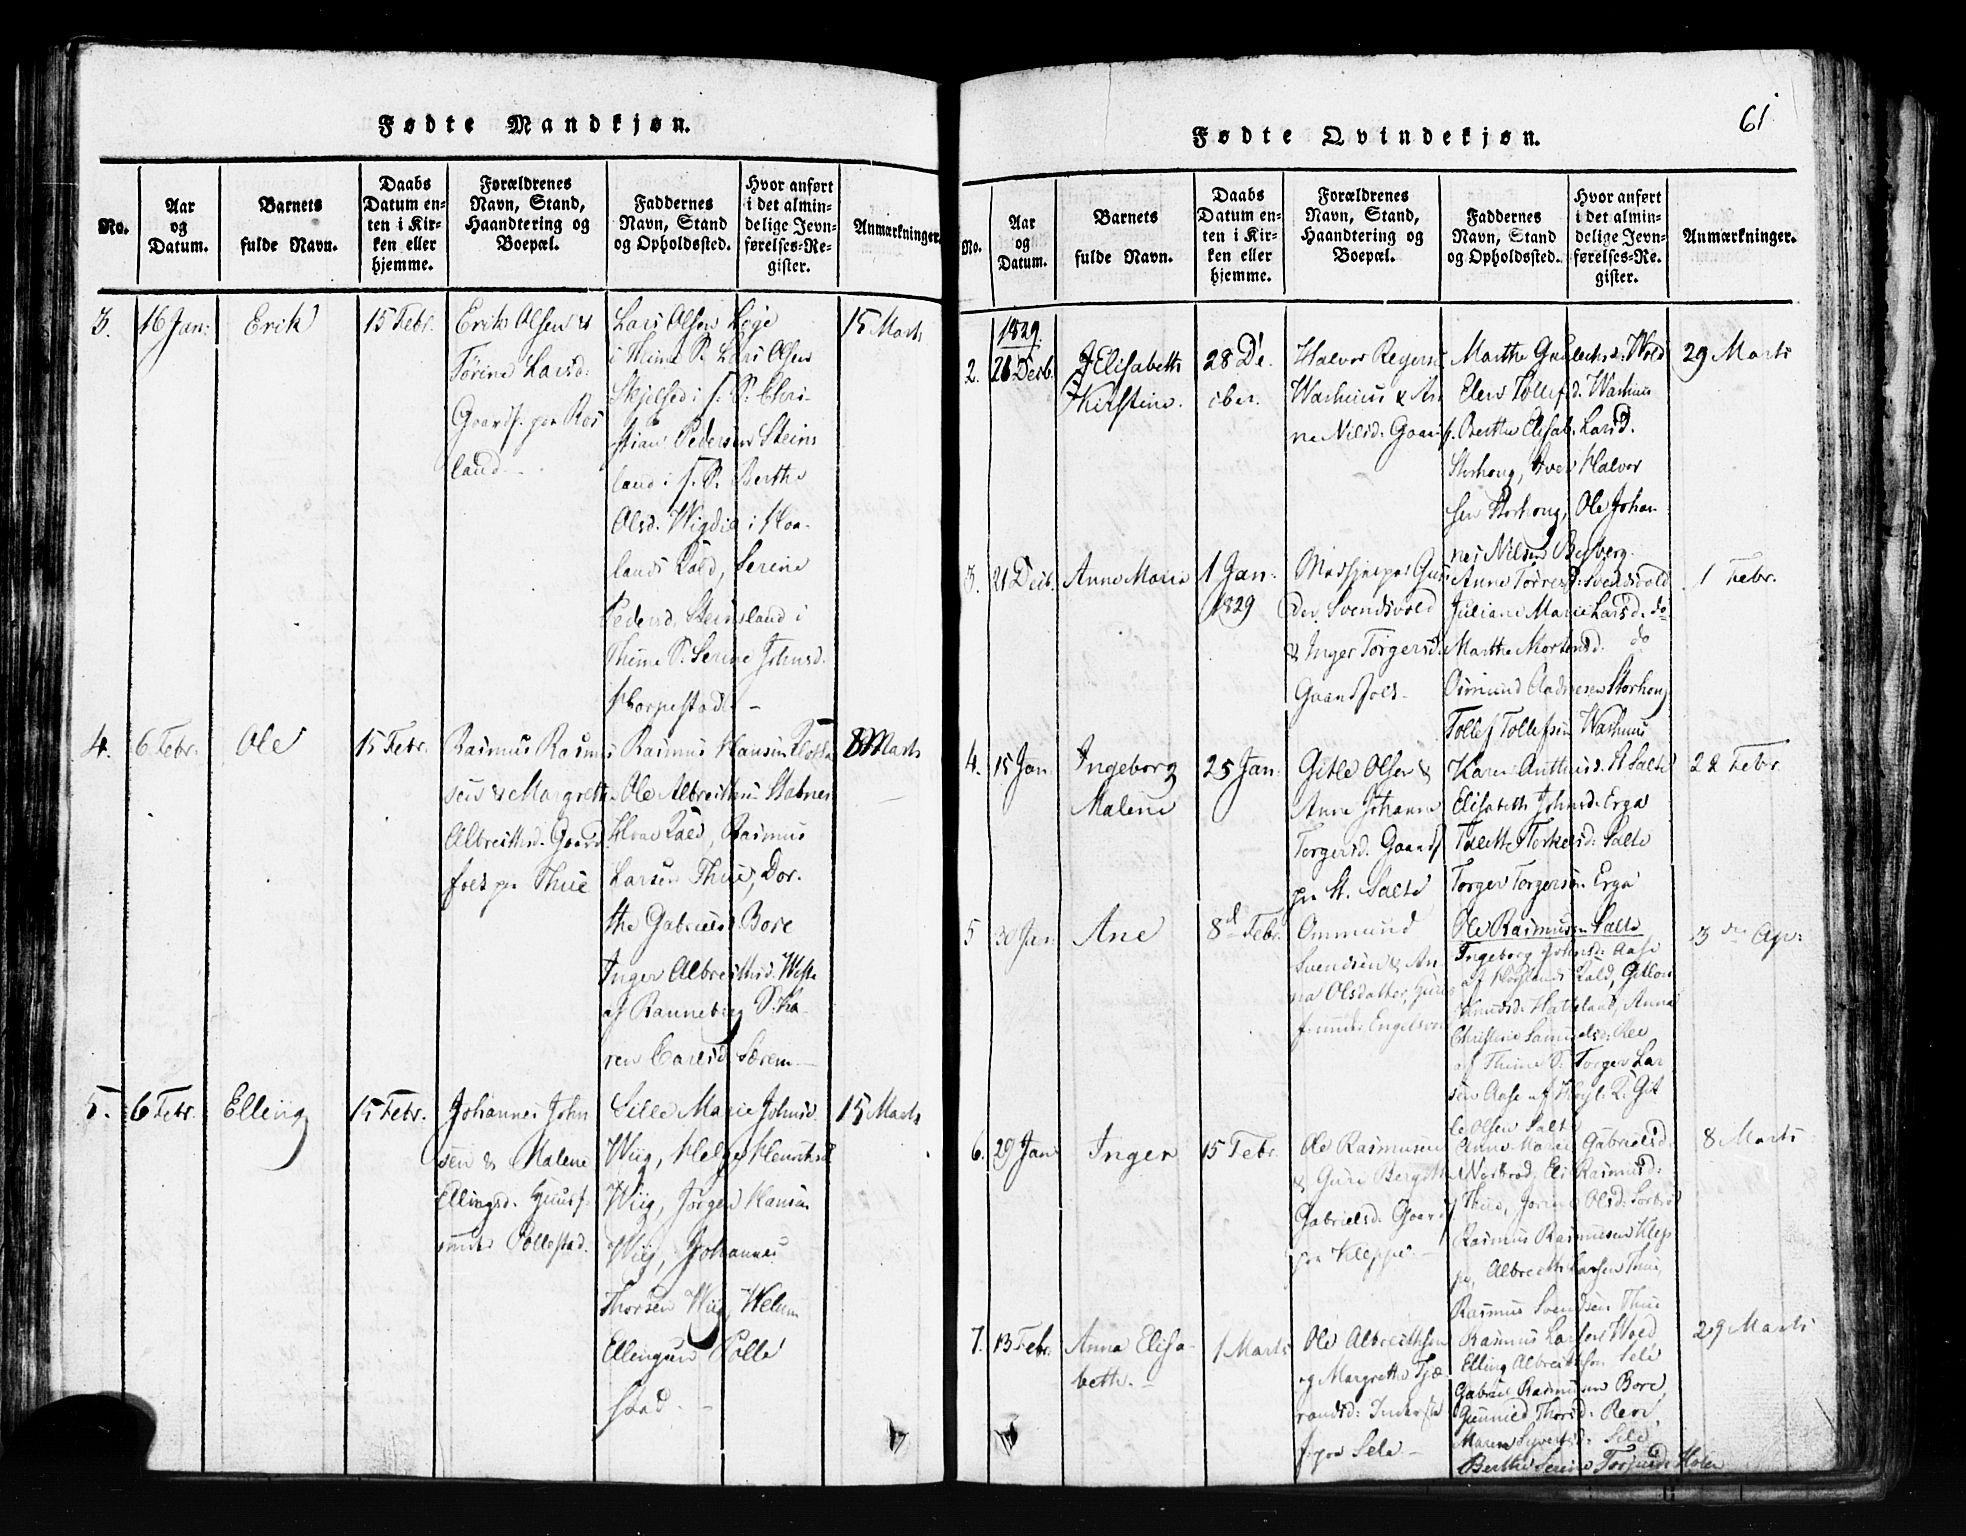 61
Fødte Mandkjøn.
No.
Aar
og
Datum.
Barnets
fulde Navn.
Daabs
Datum en-
ten i Kir-
ken eller
hjemme.
Forældrenes
Navn, Stand,
Haandtering og
Boepæl.
Faddernes
Navn, Stand
og Opholdssted.
Hvor anført
i det almin-
delige Jevn-
førelses-Re-
gister.
Anmærkninger.
3.
16 Jan:
Erik
15 Febr.
Erik Olsen &
Tørine Larsd:
Gaardf. paa Ros
land
Lars Olsen Høye
i Thime P. Lars Olsen
i s. P. Chri-
stian Pedersen Steins
land i s. P. Berthe
Olsd. Wigdia i
lands Kald, Serine
Pedersd. Steinsland i
Thime P. Serine Johnsd.
Horpestad
15 Marts
4.
6 Febr.
Ole
15 Febr.
Rasmus Rasmus
sen & Margrethe
Albreitsd. Gaard
folk paa Thue
Rasmus Hansen
Ole Albreitsen
Kald, Rasmus
Larsen Thue, Dor-
the Gabrielsd. Bore
Inger Albreitsd.
af Ranneberg P. Ka-
ren Carlsd. Særem
Marts
5.
6 Febr.
Elling
15 Febr.
Johannes John
sen & Malene
Ellingsd. Huusf.
Pollestad.
Sille Marie Johnsd.
Wiig, Helge Henrichsd
Wiig, Jørgen Hansen
Wiig, Johannes
Thorsen Wiig,
Ellingsen Polle
stad.
15 Marts
Fødte Qvindekjøn.
No.
Aar
og
Datum.
Barnets
fulde Navn.
Daabs
Datum en-
ten i Kir-
ken eller
hjemme.
Forældrenes
Navn, Stand,
Haandtering og
Boepæl.
Faddernes
Navn, Stand
og Opholdssted.
Hvor anført
i det almin-
delige Jevn-
førelses-Re-
gister.
Anmærkninger.
1829
2.
Decb.
Elisabeth
Kirstine.
28 De-
cber.
Halvor Reiers
& An
ne Nilsd. Gaar
Marthe Wold
Elen Tollefsd.
Berthe Elisab. Larsd.
Storhoug, Iver Halvor
sen Storhoug, Ole Johan
nes Nilsen Byberg.
29 Marts
3.
21 Decb.
Anne Marie
1 Jan:
1829
Svendsvold
& Inger Torgersd.
Gaardfolk
Anne Torresd. Svendsvold
Juliane Marie Larsd. do
Marthe Mortensd. do
Osmund Aadnesen Storhoug
Tollef Tollefsen
1 Febr.
4.
15 Jan:
Ingeborg
Malene
25 Jan:
Gitle Olsen &
Anne Johanne
Torgersd. Gaardf
paa St. Salte
Karen St Salte
Elisabeth Johnsd. Erga
Talette Torkelsd: Salte
Torger Torgersen Erga
Ole Rasmusen Salte
22 Febr
5
30 Jan:
Ane
8d Febr.
Ommund
Svendsen & An
na Olsdatter,
Engelsvo
Ingeborg Johnsd: Aase
af Høylands Kald,
Knudsd. Hatteland, Anna
Christine Samuelsd: Ree
af Thime P. Torger Lar
sen Aase af Høyl. K. Git
le Olsen Salte
3 Apr:
6.
29 Jan
Inger
15 Febr.
Ole Rasmusen
& Guri Bergitte
Gabrielsd. Gaard
paa Kleppe.
Anne Marie Gabrielsd.
Eli Rasmusd:
Thue, Jorine Olsd:
Rasmus Rasmusen Klep
pe, Albreth Larsen Thue,
Rasmus Svendsen Thue
8 Marts
7.
13 Febr.
Anna Elisa-
beth.
1 Marts
Ole Albreithsen
og Margrethe Tjæ
randsd:
f. paa Sele
Rasmus Larsen Wold
Elling Albreithsen Sele
Gabriel Rasmusen Bore,
Gunnild Thorsd: Reve,
Maren Syvertsd. Sele
Berthe Serine Holen
29 Marts